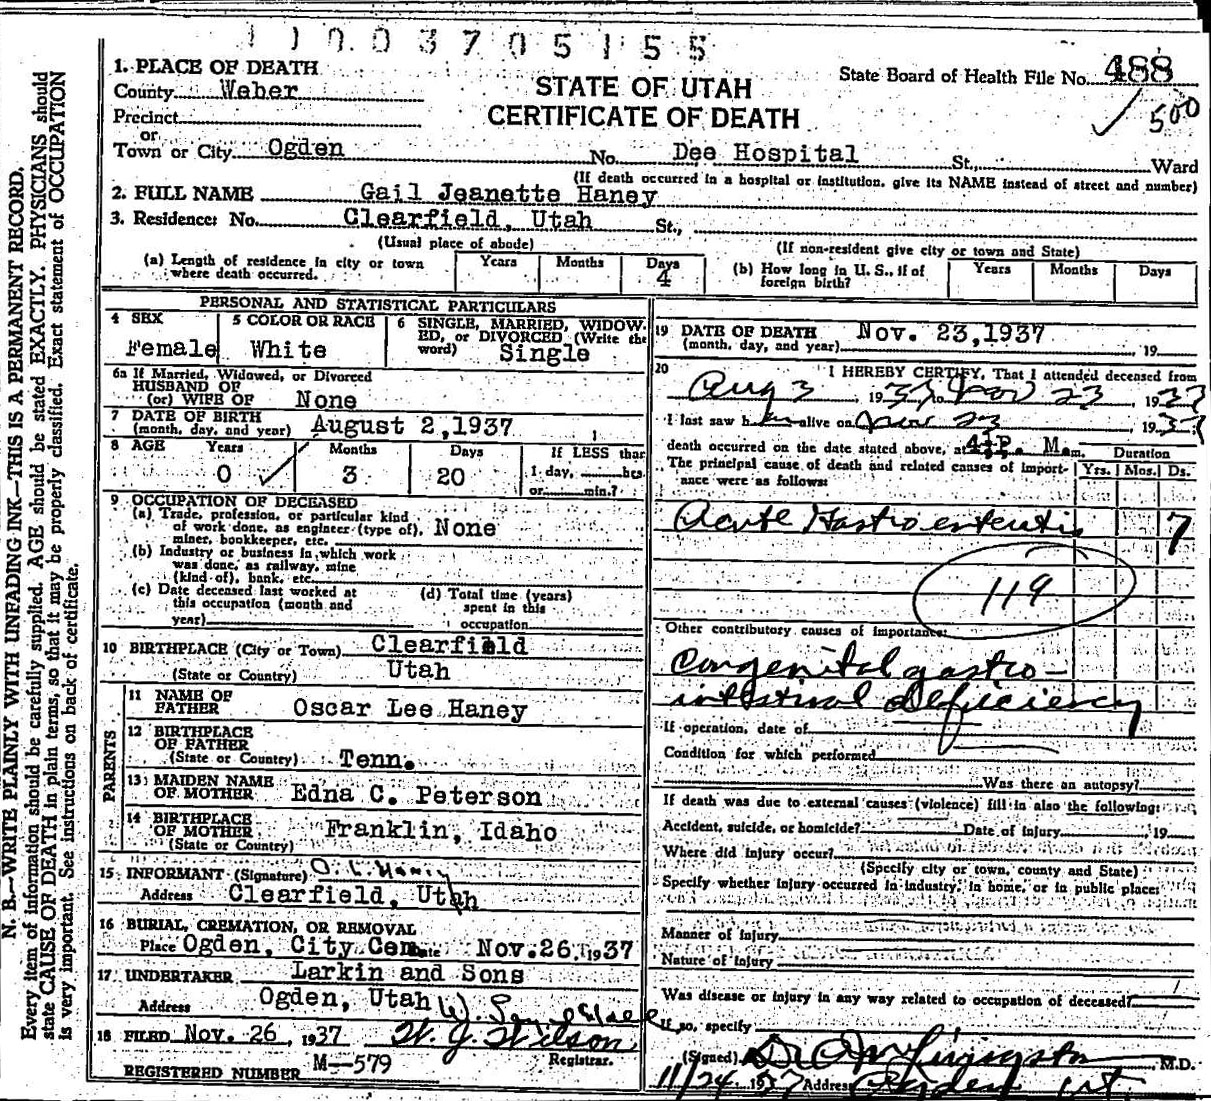 11003705155
1. PLACE OF DEATH
County Weber
STATE OF UTAH
State Board of Health File No. 488
Precinct
CERTIFICATE OF DEATH
500
or
Town or City Ogden No. Dee Hospital St., Ward
(If death occurred in a hospital or institution, give its NAME instead of street and number)
2. FULL NAME Gail Jeanette Haney
3. Residence: No. Clearfield, Utah St.,
(Usual place of abode) (If non-resident give city or town and State)
(a) Length of residence in city or town where death occurred. Years Months Days 4
(b) How long in U. S., if of foreign birth? Years Months Days
PERSONAL AND STATISTICAL PARTICULARS
4 SEX Female
5 COLOR OR RACE White
6 SINGLE, MARRIED, WIDOWED, or DIVORCED (Write the word) Single
6a If Married, Widowed, or Divorced
HUSBAND OF
(or) WIFE OF None
7 DATE OF BIRTH
(month, day, and year) August 2,1937
8 AGE Years Months Days If LESS than
0 3 20 1 day, hrs.
or min.?
9 OCCUPATION OF DECEASED
(a) Trade, profession, or particular kind
of work done, as engineer (type of), None
miner, bookkeeper, etc.
(b) Industry or business in which work
was done, as railway, mine
(kind of), bank, etc.
(c) Date deceased last worked at
this occupation (month and
year)
(d) Total time (years)
spent in this
occupation
10 BIRTHPLACE (City or Town) Clearfield
(State or Country) Utah
PARENTS
11 NAME OF
FATHER Oscar Lee Haney
12 BIRTHPLACE
OF FATHER
(State or Country) Tenn.
13 MAIDEN NAME
OF MOTHER Edna C. Peterson
14 BIRTHPLACE
OF MOTHER Franklin, Idaho
(State or Country)
15 INFORMANT (Signature) O. L. Haney
Address Clearfield, Utah
16 BURIAL, CREMATION, OR REMOVAL
Place Ogden, City Cem. Date Nov.26, 1937
17 UNDERTAKER Larkin and Sons
Address Ogden, Utah
18 FILED Nov. 26, 1937 W. J. Wilson
Registrar.
REGISTERED NUMBER M-579
19 DATE OF DEATH Nov. 23,1937
(month, day, and year) , 19
20 I HEREBY CERTIFY, That I attended deceased from
Aug 3, 1937, to Nov 23, 1937
I last saw her alive on Nov 23 1937
death occurred on the date stated above, at 4 P. M. m.
The principal cause of death and related causes of importance were as follows:
Duration
Yrs. Mos. Ds.
Acute Gastro enteritis 7
119
Other contributory causes of importance:
Congenital gastro-
intestinal deficiency
If operation, date of
Condition for which performed
Was there an autopsy?
If death was due to external causes (violence) fill in also the following:
Accident, suicide, or homicide? Date of injury 19
Where did injury occur?
(Specify city or town, county and State)
Specify whether injury occurred in industry, in home, or in public place:
Manner of injury
Nature of injury
Was disease or injury in any way related to occupation of deceased?
If so, specify
(Signed) Livingston M.D.
11/24 1937 Address Ogden Ut.
N. B.—WRITE PLAINLY WITH UNFADING INK—THIS IS A PERMANENT RECORD.
Every item of information should be carefully supplied. AGE should be stated EXACTLY. PHYSICIANS should
state CAUSE OF DEATH in plain terms, so that it may be properly classified. Exact statement of OCCUPATION
is very important. See instructions on back of certificate.